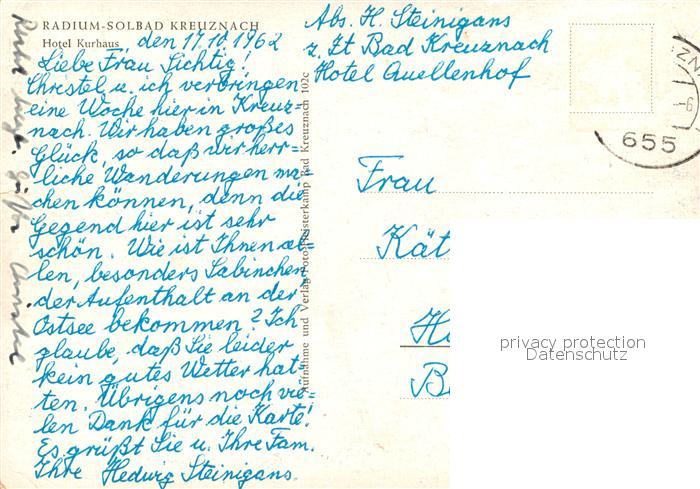 RADIUM-SOLBAD KREUZNACH
Hotel Kurhaus
, den 17.10.1962
Liebe Frau Sichtig!
Christel u. ich verbringen
eine Woche hier in Kreuz=
nach. Wir haben großes
Glück, so daß wir herr=
liche Wanderungen ma=
chen können, denn die
Gegend hier ist sehr
schön. Wie ist Ihnen al=
len, besonders Sabinchen
der Aufenthalt an der
Ostsee bekommen? Ich
glaube, daß Sie leider
kein gutes Wetter hat=
ten. Übrigens noch vie=
len Dank für die Karte!
Es grüßt Sie u. Ihre Fam.
Ihre Hedwig Steinigans.
Aufnahme und Verlag Foto-Rusterkamp Bad Kreuznach 102c
Abs. H. Steinigans
z. Zt Bad Kreuznach
Hotel Quellenhof
655
Frau
Kät
H
B
privacy protection
Datenschutz